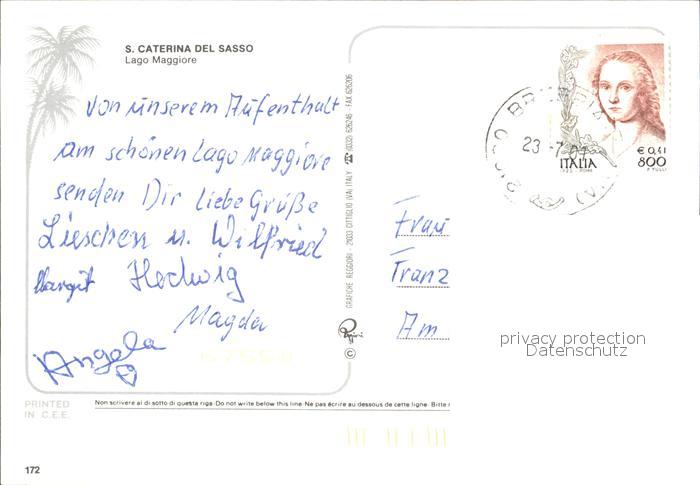 S. CATERINA DEL SASSO
Lago Maggiore
Von unserem Aufenthalt
am schönen Lago Maggiore
senden Dir liebe Grüße
Lieschen u. Wilfried
Margit Hedwig
Magda
Angela
PRINTED
IN C.E.E.
172
Non scrivere al di sotto di questa riga - Do not write below this line - Ne pas écrire au dessous de cette ligne - Bitte
GRAFICHE REGGIORI - 21033 CITTIGLIO (VA) ITALY ☎ (0332) 626245 - FAX 626306
©
€ 0,41
ITALIA 800
23 -7
Frau
Franz
Am
privacy protection
Datenschutz